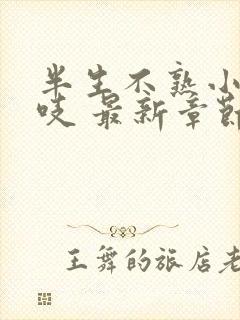 半生不熟小
吱 最新章節
王舞的旅店老